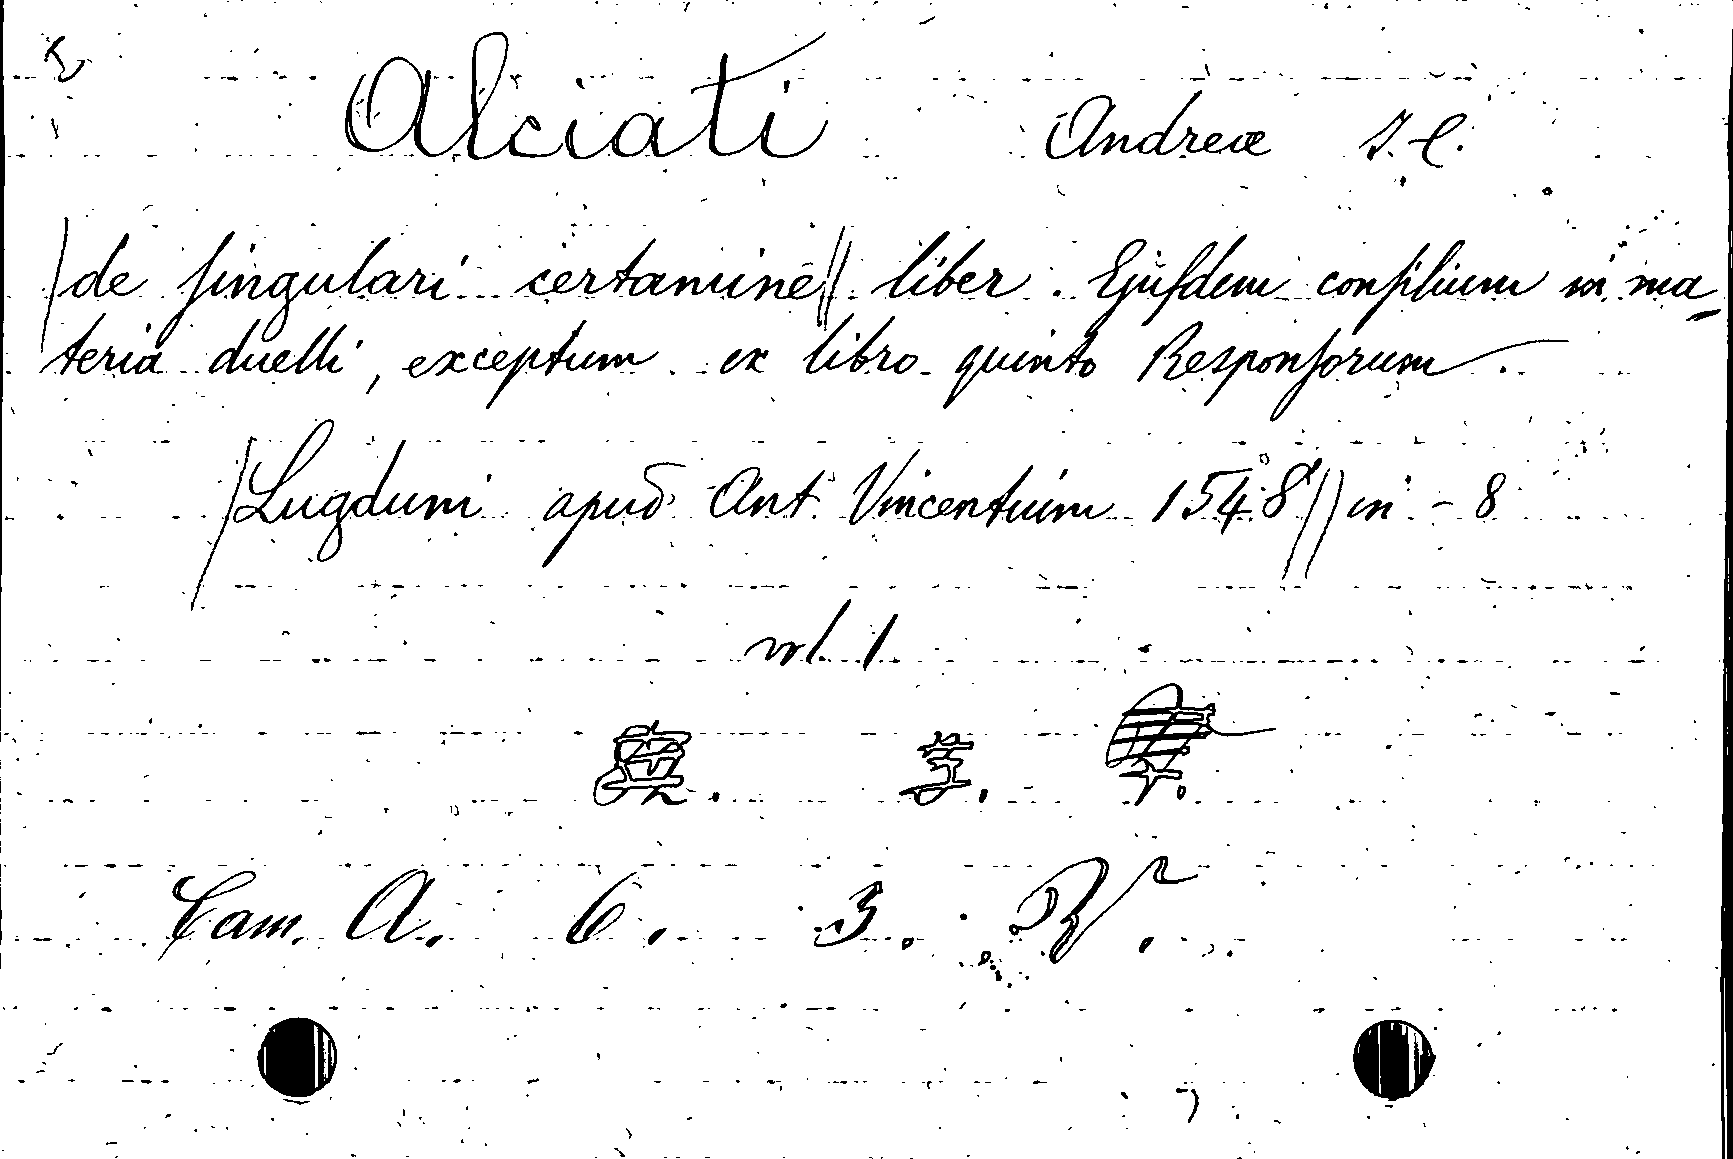 Alciati Andreæ J. C.
de ſingulari certamine liber. Ejuſdem conſilium in ma-
teria duelli, exceptum ex libro quinto Responſorum.
Lugduni apud Ant. Vincentium 1548 in-8
vol. 1
Cam. A. 6. 3.